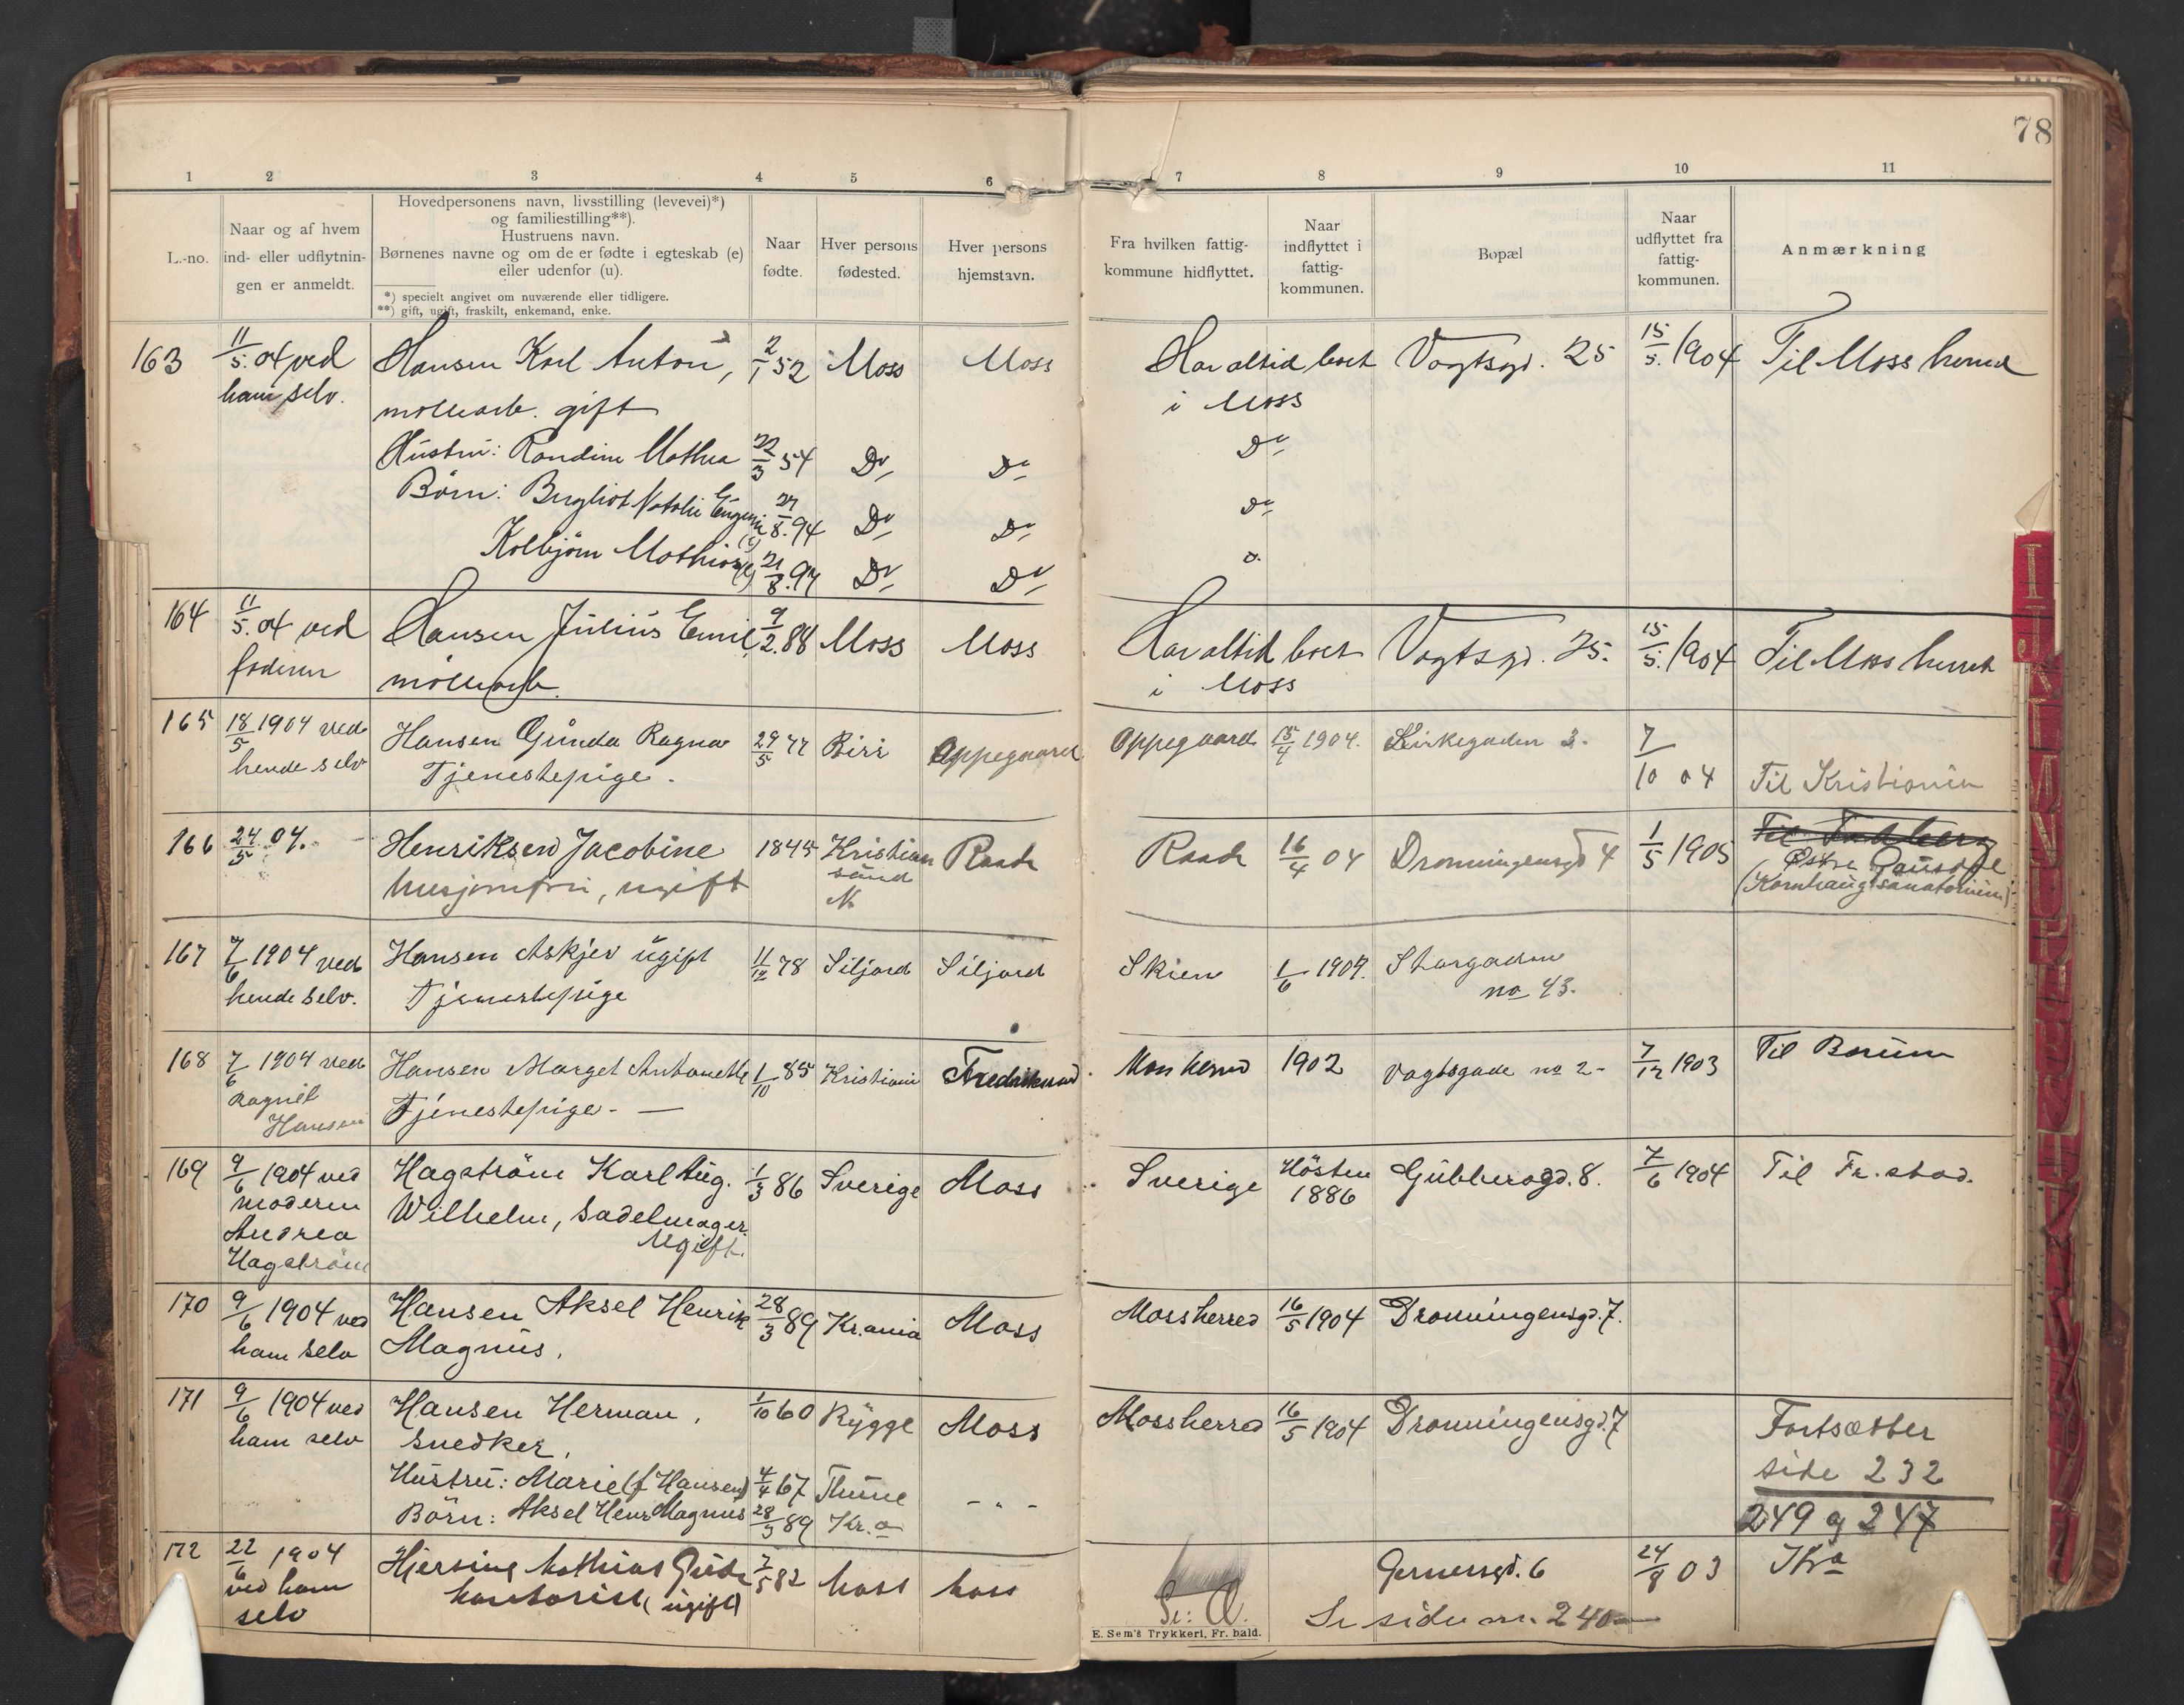 78
1 2 3 4 5 6 7 8 9 10 11
L.-no.
Naar og af hvem
ind- eller udflytnin-
gen er anmeldt.
Hovedpersonens navn, livsstilling (levevei)*)
og familiestilling**).
Hustruens navn.
Børnenes navne og om de er fødte i egteskab (e)
eller udenfor (u).
*) specielt angivet om nuværende eller tidligere.
**) gift, ugift, fraskilt, enkemand, enke.
Naar
fødte.
Hver persons
fødested.
Hver persons
hjemstavn.
Fra hvilken fattig-
kommune hidflyttet.
Naar
indflyttet i
fattig-
kommunen.
Bopæl
Naar
udflyttet fra
fattig-
kommunen.
Anmærkning
163 11/5.04 ved Hansen Karl Anton, 2/1 52 Moss Moss Har altid boet Vogtsgd. 25 15/5. 1904 Til Moss herred
ham selv. møllearb. gift i Moss
Hustru: Randine Mathea 22/3 54 Do Do Do
Børn: Bergliot Natalie Eugenie (e) 27/8.94 Do Do Do
Kolbjørn Mathias (e) 21/8.97 Do Do Do
164 11/5.04 ved Hansen Julius Emil, 9/2.88 Moss Moss Har altid boet Vogtsgd. 25. 15/5. 1904 Til Moss herred
faderen møllearb. i Moss
165 18/5 1904 ved Hansen Gunda Ragna 29/5 77 Biri Oppegaard Oppegaard 15/4 1904. Kirkegaden 3. 7/10 04 Til Kristiania
hende selv Tjenestepige.
166 24/5 04. Henriksen Jacobine 1845 Kristiansund N. Raade Raade 16/4 04 Dronningensgd 4 1/5 1905 Til Faaberg
husjomfru, ugift Østre Gausdal
(Kornhaug sanatorium)
167 7/6 1904 ved Hansen Askjer ugift 11/12 78 Siljord Siljord Skien 1/6 1904. Storgaden
hende selv. Tjenestepige no 43.
168 7/6 1904 ved Hansen Marget Antonette 1/10 85 Kristiania Fredrikstad Moss herred 1902 Vogtsgade no 2 - 7/12 1903 Til Bærum
Ragnil Hansen Tjenestepige. —
169 9/6 1904 ved Hagström Karl Aug. 1/3 86 Sverige Moss Sverige Høsten 1886 Gubberogd. 8. 7/6 1904 Til Fr.stad.
moderen Wilhelm, Sadelmager
Andrea Ugift.
Hagström
170 9/6 1904 ved Hansen Aksel Henrik 28/3 89 Kr.ania Moss Mossherred 16/5 1904 Dronningensgd. 7.
ham selv Magnus.
171 9/6 1904 ved Hansen Herman, 1/10 60 Rygge Moss Mossherred 16/5 1904 Dronningensgd. 7 Fortsætter
ham selv Snedker. side 232
Hustru: Marie (f Hansen) 4/4 67 Thune - " -
Børn: Aksel Henr Magnus 28/3 89 Kr.a 249 og 247
172 22/6 1904 Hjersing Mathias Gude 7/5 82 Moss Moss Gernersgd. 6 24/8 03 Kra
ved ham Kontorist (ugift)
selv Se side nr. 240
E. Sem's Trykkeri, Fr. hald.